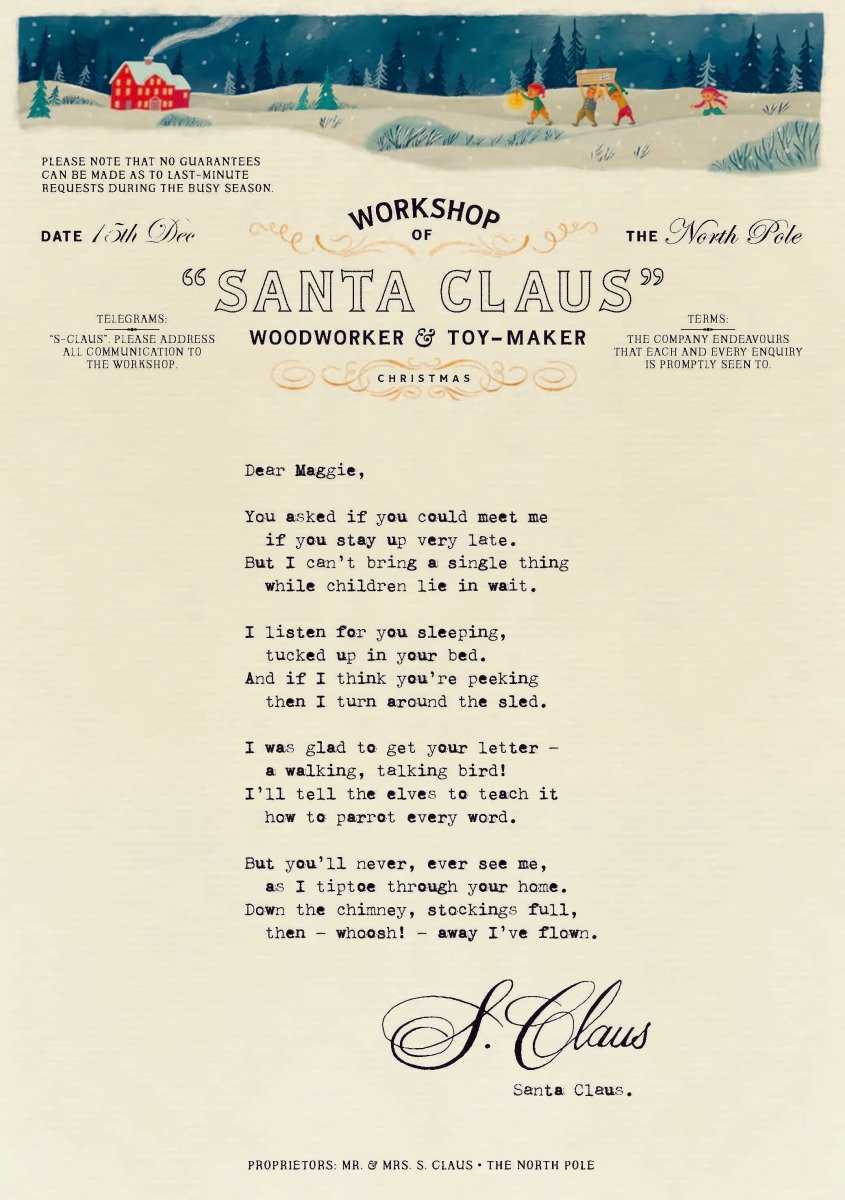 PLEASE NOTE THAT NO GUARANTEES
CAN BE MADE AS TO LAST-MINUTE
REQUESTS DURING THE BUSY SEASON.
DATE 15th Dec
WORKSHOP
OF
THE North Pole
“SANTA CLAUS”
TELEGRAMS:
"S-CLAUS". PLEASE ADDRESS
ALL COMMUNICATION TO
THE WORKSHOP.
WOODWORKER & TOY-MAKER
CHRISTMAS
TERMS:
THE COMPANY ENDEAVOURS
THAT EACH AND EVERY ENQUIRY
IS PROMPTLY SEEN TO.
Dear Maggie,
You asked if you could meet me
if you stay up very late.
But I can't bring a single thing
while children lie in wait.
I listen for you sleeping,
tucked up in your bed.
And if I think you're peeking
then I turn around the sled.
I was glad to get your letter –
a walking, talking bird!
I'll tell the elves to teach it
how to parrot every word.
But you'll never, ever see me,
as I tiptoe through your home.
Down the chimney, stockings full,
then – whoosh! – away I've flown.
S. Claus
Santa Claus.
PROPRIETORS: MR. & MRS. S. CLAUS • THE NORTH POLE